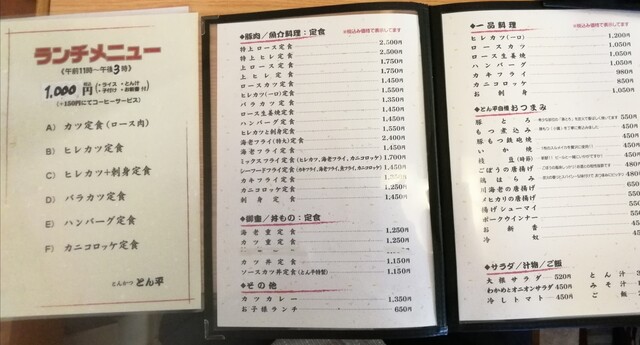 ランチメニュー
《午前11時〜午後3時》
1,000円 税込 (+ライス・とん汁 +小付け・お新香 付)
(+150円にてコーヒーサービス)
A) カツ定食(ロース肉)
B) ヒレカツ定食
C) ヒレカツ+刺身定食
D) バラカツ定食
E) ハンバーグ定食
F) カニコロッケ定食
とんかつ とん平
◆豚肉/魚介料理:定食
※税込み価格で表示してます
特上ロース定食 2,500円
特上ヒレ定食 2,500円
上ロース定食 1,750円
上ヒレ定食 1,750円
ロースカツ定食 1,450円
ヒレカツ(一口)定食 1,450円
バラカツ定食 1,350円
ロース生姜焼定食 1,450円
ハンバーグ定食 1,450円
ヒレカツと刺身定食 1,550円
海老フライ(特大)定食 2,400円
海老フライ定食 1,450円
ミックスフライ定食(ヒレカツ、海老フライ、カニコロッケ) 1,700円
シーフードフライ定食(カキフライ、海老フライ、魚フライ、カニコロッケ) 1,450円
カキフライ定食
カニコロッケ定食 1,250円
刺身定食 1,450円
◆御重/丼もの:定食
海老重定食 1,250円
カツ重定食 1,250円
カツ丼定食 1,150円
ソースカツ丼定食(とん平特製) 1,150円
◆その他
カツカレー 1,350円
お子様ランチ 650円
◆一品料理
※税込み価格で表示してます
ヒレカツ(一口) 1,200円
ロースカツ 1,050円
ロース生姜焼 1,050円
ハンバーグ 1,050円
カキフライ 980円
カニコロッケ 850円
お刺身 1,050円
◆とん平自慢 おつまみ
豚とろ 550円
もつ煮込み
豚もつ鉄砲焼
いか焼
枝豆(時節)
ごぼうの唐揚げ
鶏はらみ
川海老の唐揚げ
メヒカリの唐揚げ
揚げシューマイ
ポークウインナー
お新香
冷奴
◆サラダ/汁物/ご飯
大根サラダ 520円
わかめとオニオンサラダ 450円
冷しトマト 450円
とん汁
みそ汁
ご飯